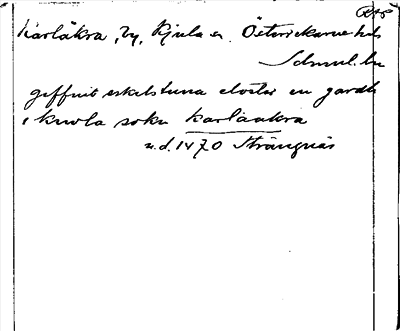 Karlåkra, by, Kjula sn Österrekarne hd
Södml. ln
geffuit eskelstuna closter en gardh
i kiwla sokn karlaakra
u.d. 1470 Strängnäs